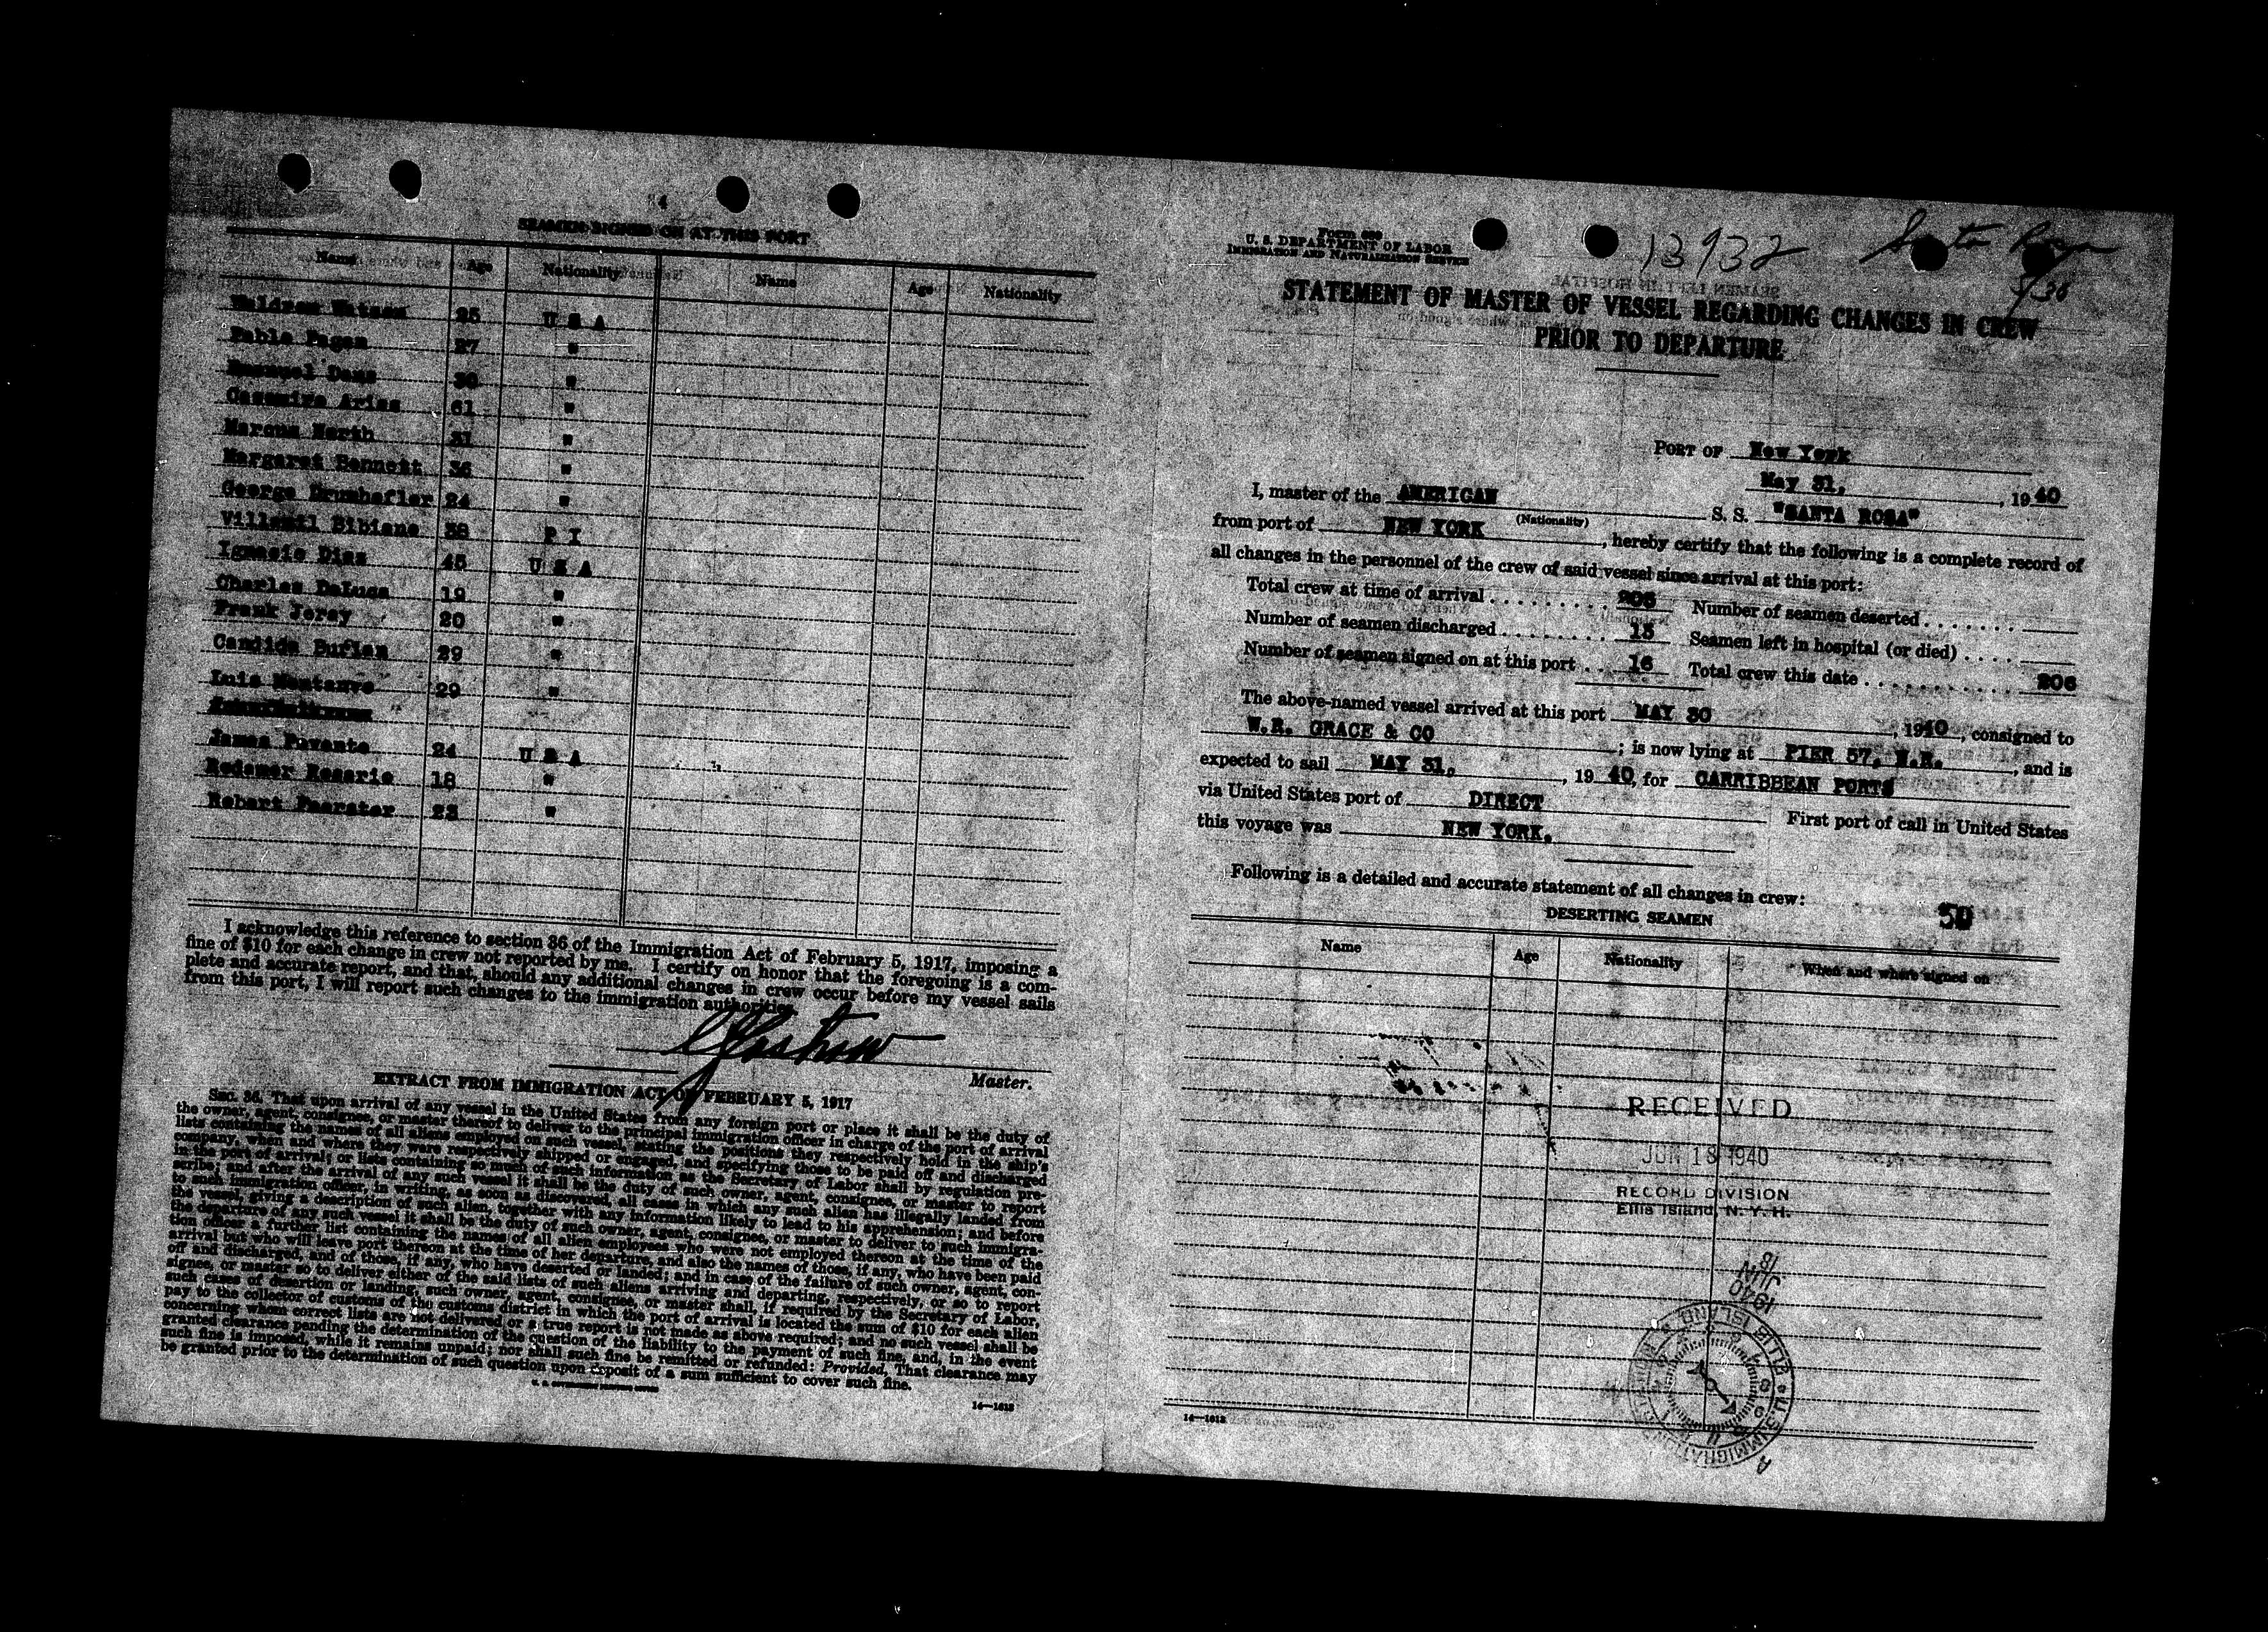 4
SEAMEN SIGNED ON AT THIS PORT
Name Age Nationality Name Age Nationality
Waldrem Watson 25 U S A
Pablo Pagan 27 "
Emanuel Dans 30 "
Casamira Arias 61 "
Marcus North 31 "
Margaret Bennett 36 "
George Drumhefler 24 "
Villamil Bibiano 38 P I
Ignacio Dias 45 U S A
Charles DeLuca 19 "
Frank Jorey 20 "
Candida Buflan 29 "
Luis 29 "
James Povante 24 U S A
Rosario 18 "
Robert Faerster 23 "
I acknowledge this reference to section 36 of the Immigration Act of February 5, 1917, imposing a
fine of $10 for each change in crew not reported by me. I certify on honor that the foregoing is a com-
plete and accurate report, and that, should any additional changes in crew occur before my vessel sails
from this port, I will report such changes to the immigration authorities.
Master.
EXTRACT FROM IMMIGRATION ACT OF FEBRUARY 5, 1917
Sec. 36. That upon arrival of any vessel in the United States from any foreign port or place it shall be the duty of
the owner, agent, consignee, or master thereof to deliver to the principal immigration officer in charge of the port of arrival
lists containing the names of all aliens employed on such vessel, stating the positions they respectively hold in the ship's
company, when and where they were respectively shipped or engaged, and specifying those to be paid off and discharged
in the port of arrival; or lists containing so much of such information as the Secretary of Labor shall by regulation pre-
scribe; and after the arrival of any such vessel it shall be the duty of such owner, agent, consignee, or master to report
to such immigration officer, in writing, as soon as discovered, all cases in which any such alien has illegally landed from
the vessel, giving a description of such alien, together with any information likely to lead to his apprehension; and before
the departure of any such vessel it shall be the duty of such owner, agent, consignee, or master to deliver to such immigra-
tion officer a further list containing the names of all alien employees who were not employed thereon at the time of the
arrival but who will leave port thereon at the time of her departure, and also the names of those, if any, who have been paid
off and discharged, and of those, if any, who have deserted or landed; and in case of the failure of such owner, agent, con-
signee, or master so to deliver either of the said lists of such aliens arriving and departing, respectively, or so to report
such cases of desertion or landing, such owner, agent, consignee, or master shall, if required by the Secretary of Labor,
pay to the collector of customs of the customs district in which the port of arrival is located the sum of $10 for each alien
concerning whom correct lists are not delivered or a true report is not made as above required; and no such vessel shall be
granted clearance pending the determination of the question of the liability to the payment of such fine, and, in the event
such fine is imposed, while it remains unpaid; nor shall such fine be remitted or refunded: Provided, That clearance may
be granted prior to the determination of such question upon deposit of a sum sufficient to cover such fine.
U. S. GOVERNMENT PRINTING OFFICE
14—1613
Form 689
U. S. DEPARTMENT OF LABOR
IMMIGRATION AND NATURALIZATION SERVICE
13932 Santa Rosa
5/30
STATEMENT OF MASTER OF VESSEL REGARDING CHANGES IN CREW
PRIOR TO DEPARTURE
PORT OF New York
May 31, , 19 40
I, master of the AMERICAN S. S. "SANTA ROSA"
(Nationality)
from port of NEW YORK , hereby certify that the following is a complete record of
all changes in the personnel of the crew of said vessel since arrival at this port:
Total crew at time of arrival . . . . . . . . . 205 Number of seamen deserted . . . . . . .
Number of seamen discharged . . . . . . . . 15 Seamen left in hospital (or died) . . . .
Number of seamen signed on at this port . . 16 Total crew this date . . . . . . . . . . . 206
The above-named vessel arrived at this port MAY 30 , 1940 , consigned to
W.R. GRACE & CO ; is now lying at PIER 57, N.R. , and is
expected to sail MAY 31, , 19 40, for CARRIBBEAN PORTS
via United States port of DIRECT First port of call in United States
this voyage was NEW YORK,
Following is a detailed and accurate statement of all changes in crew:
50
DESERTING SEAMEN
Name Age Nationality When and where signed on
RECEIVED
JUN 18 1940
RECORD DIVISION
Ellis Island, N. Y. H.
1940
JUN
18
14—1613